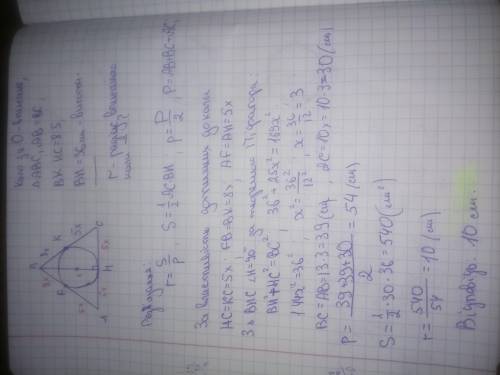 коло з у. O - вписане,
△ABC, AB = BC,
BK : KC = 8:5,
BH = 36 см - висота
r - радіус вписаного
кола
B
8x
8x
F
K
5x
5x
O
A
5x
H
5x
C
Розв'язання:
r = S/p , S = 1/2 AC·BH p = P/2 , P = AB+BC+AC,
За властивістю дотичних до кола
HC = KC = 5x; FB = BK = 8x, AF = AH = 5x
З △ BHC ∠H = 90° за теоремою Піфагора
BH² + HC² = BC², 36² + 25x² = 169x²
144x² = 36², x² = 36²/12², x = 36/12 = 3
BC = AB = 13·3 = 39 (см), AC = 10x = 10·3 = 30 (см)
p = 39+39+30/2 = 54 (см)
S = 1/2 · 30 · 36 = 540 (см²)
r = 540/54 = 10 (см)
Відповідь. 10 см.